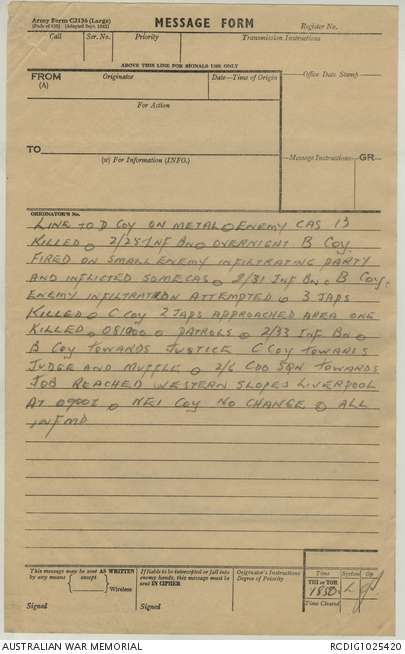 Army Form C2136 (Large)
MESSAGE FORM
Register No.
Call
Ser. No.
Priority
Transmission Instructions
ABOVE THIS LINE FOR SIGNALS USE ONLY
FROM
(A)
Originator
Date—Time of Origin
Office Date Stamp
For Action
TO
(W) For Information (INFO.)
Message Instructions
GR
ORIGINATOR'S No.
LINE TO D COY ON METAL o ENEMY CAS 13
KILLED o 2/25 INF BN o OVERNIGHT B COY
FIRED ON SMALL ENEMY INFILTRATING PARTY
AND INFLICTED SOME CAS o 2/31 INF BN o B COY.
ENEMY INFILTRATION ATTEMPTED o 3 JAPS
KILLED o C COY 2 JAPS APPROACHED AREA ONE
KILLED o 081900 o PATROLS o 2/33 INF BN o
B COY TOWARDS JUSTICE C COY TOWARDS
JUDGE AND MUFFLE o 2/6 CDO SQN TOWARDS
JOB REACHED WESTERN SLOPES LIVERPOOL
AT 0900I o NEI COY NO CHANGE o ALL
INFMD
This message may be sent AS WRITTEN
by any means
except
Wireless
Signed
If liable to be intercepted or fall into
enemy hands, this message must be
sent IN CIPHER
Signed
Originator's Instructions
Degree of Priority
Time
System
Op
THI or TOR
1850
L
Time Cleared
AUSTRALIAN WAR MEMORIAL
RCDIG1025420